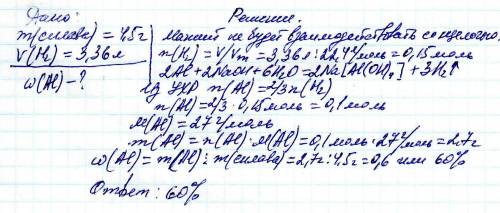 Дано:
m(сплава) = 4,5 г
V(H₂) = 3,36 л
ω(Al) - ?
Решение:
Магний не будет взаимодействовать со щелочью.
n(H₂) = V/Vm = 3,36 л : 22,4 л/моль = 0,15 моль
2Al + 2NaOH + 6H₂O = 2Na[Al(OH)₄] + 3H₂↑
Из УХР n(Al) = 2/3 n(H₂)
n(Al) = 2/3 · 0,15 моль = 0,1 моль
M(Al) = 27 г/моль
m(Al) = n(Al) · M(Al) = 0,1 моль · 27 г/моль = 2,7 г
ω(Al) = m(Al) : m(сплава) = 2,7 г : 4,5 г = 0,6 или 60%
Ответ: 60%